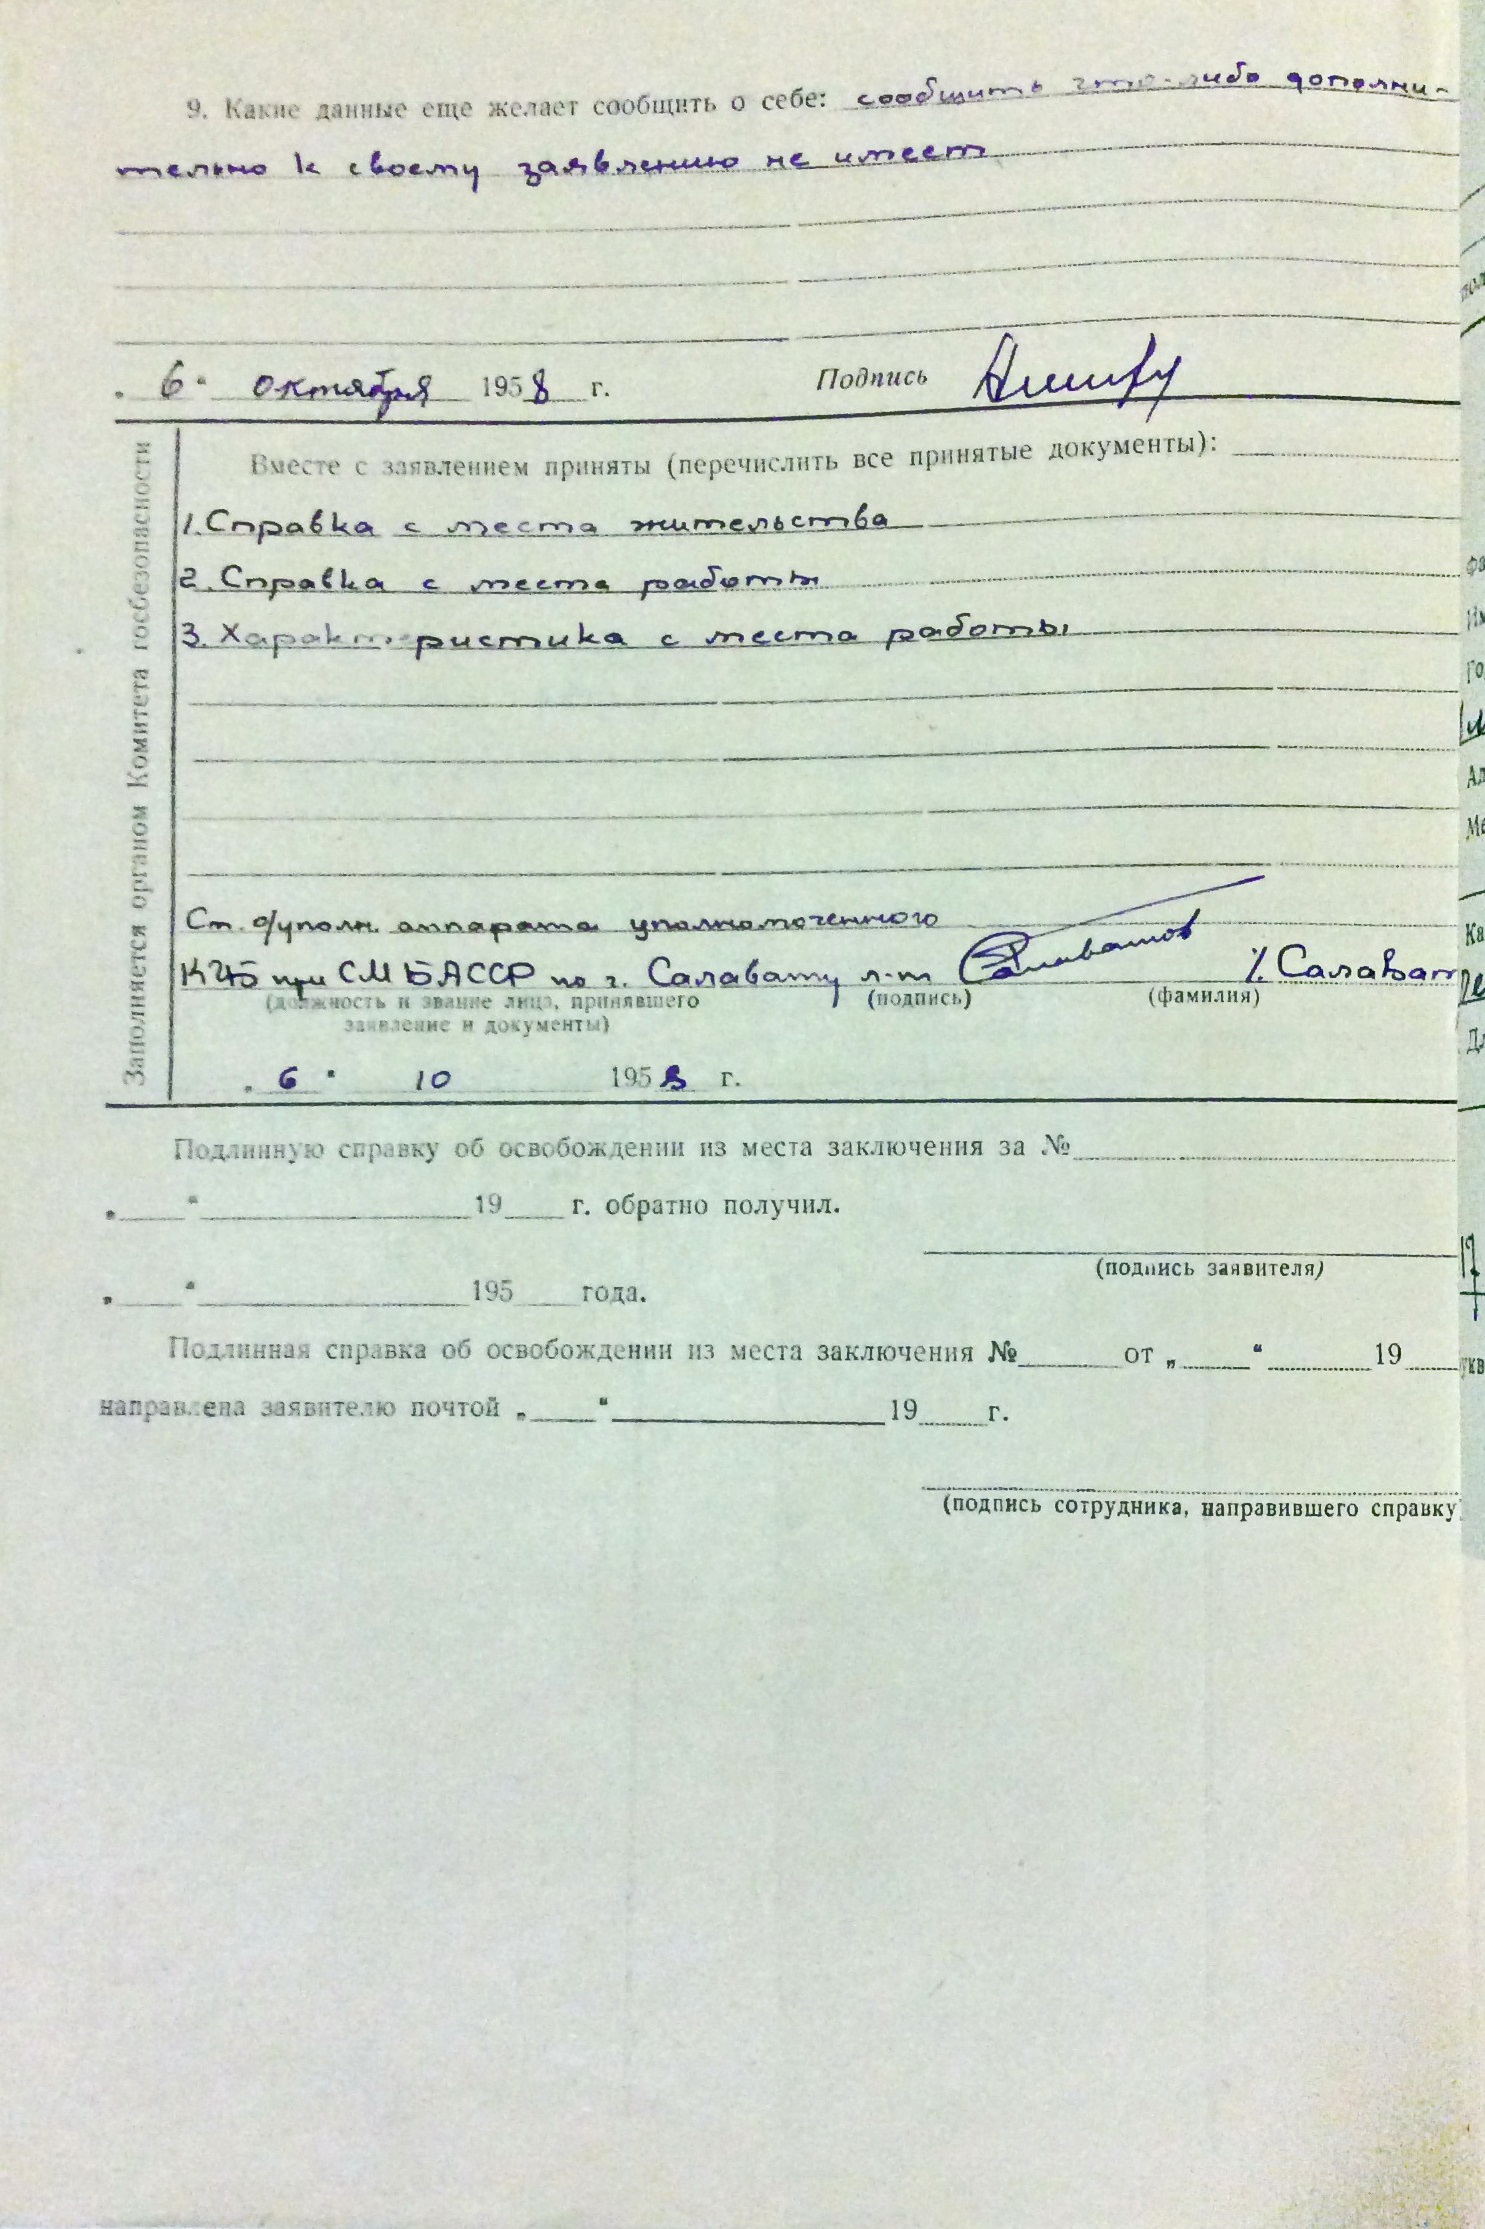 9. Какие данные еще желает сообщить о себе: сообщить что-либо дополни-
тельно к своему заявлению не имеет
„ 6 " октября 1958 г. Подпись
Заполняется органом Комитета госбезопасности
Вместе с заявлением приняты (перечислить все принятые документы):
1. Справка с места жительства
2. Справка с места работы
3. Характеристика с места работы
Ст. о/уполн. аппарата уполномоченного
КГБ при СМ БАССР по г. Салавату л-т Салаватов /. Салават
(должность и звание лица, принявшего (подпись) (фамилия)
заявление и документы)
„ 6 " 10 1958 г.
Подлинную справку об освобождении из места заключения за №
„ " 19 г. обратно получил.
(подпись заявителя)
„ " 195 года.
Подлинная справка об освобождении из места заключения № от „ " 19
направлена заявителю почтой „ " 19 г.
(подпись сотрудника, направившего справку)